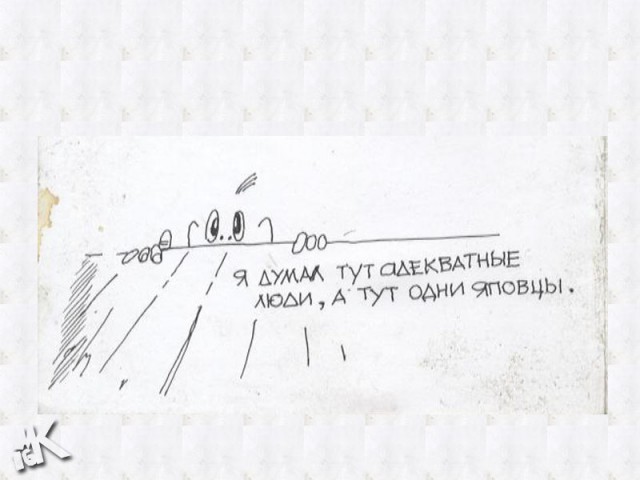 Я ДУМАЛ ТУТ АДЕКВАТНЫЕ
ЛЮДИ, А ТУТ ОДНИ ЯПОВЦЫ.